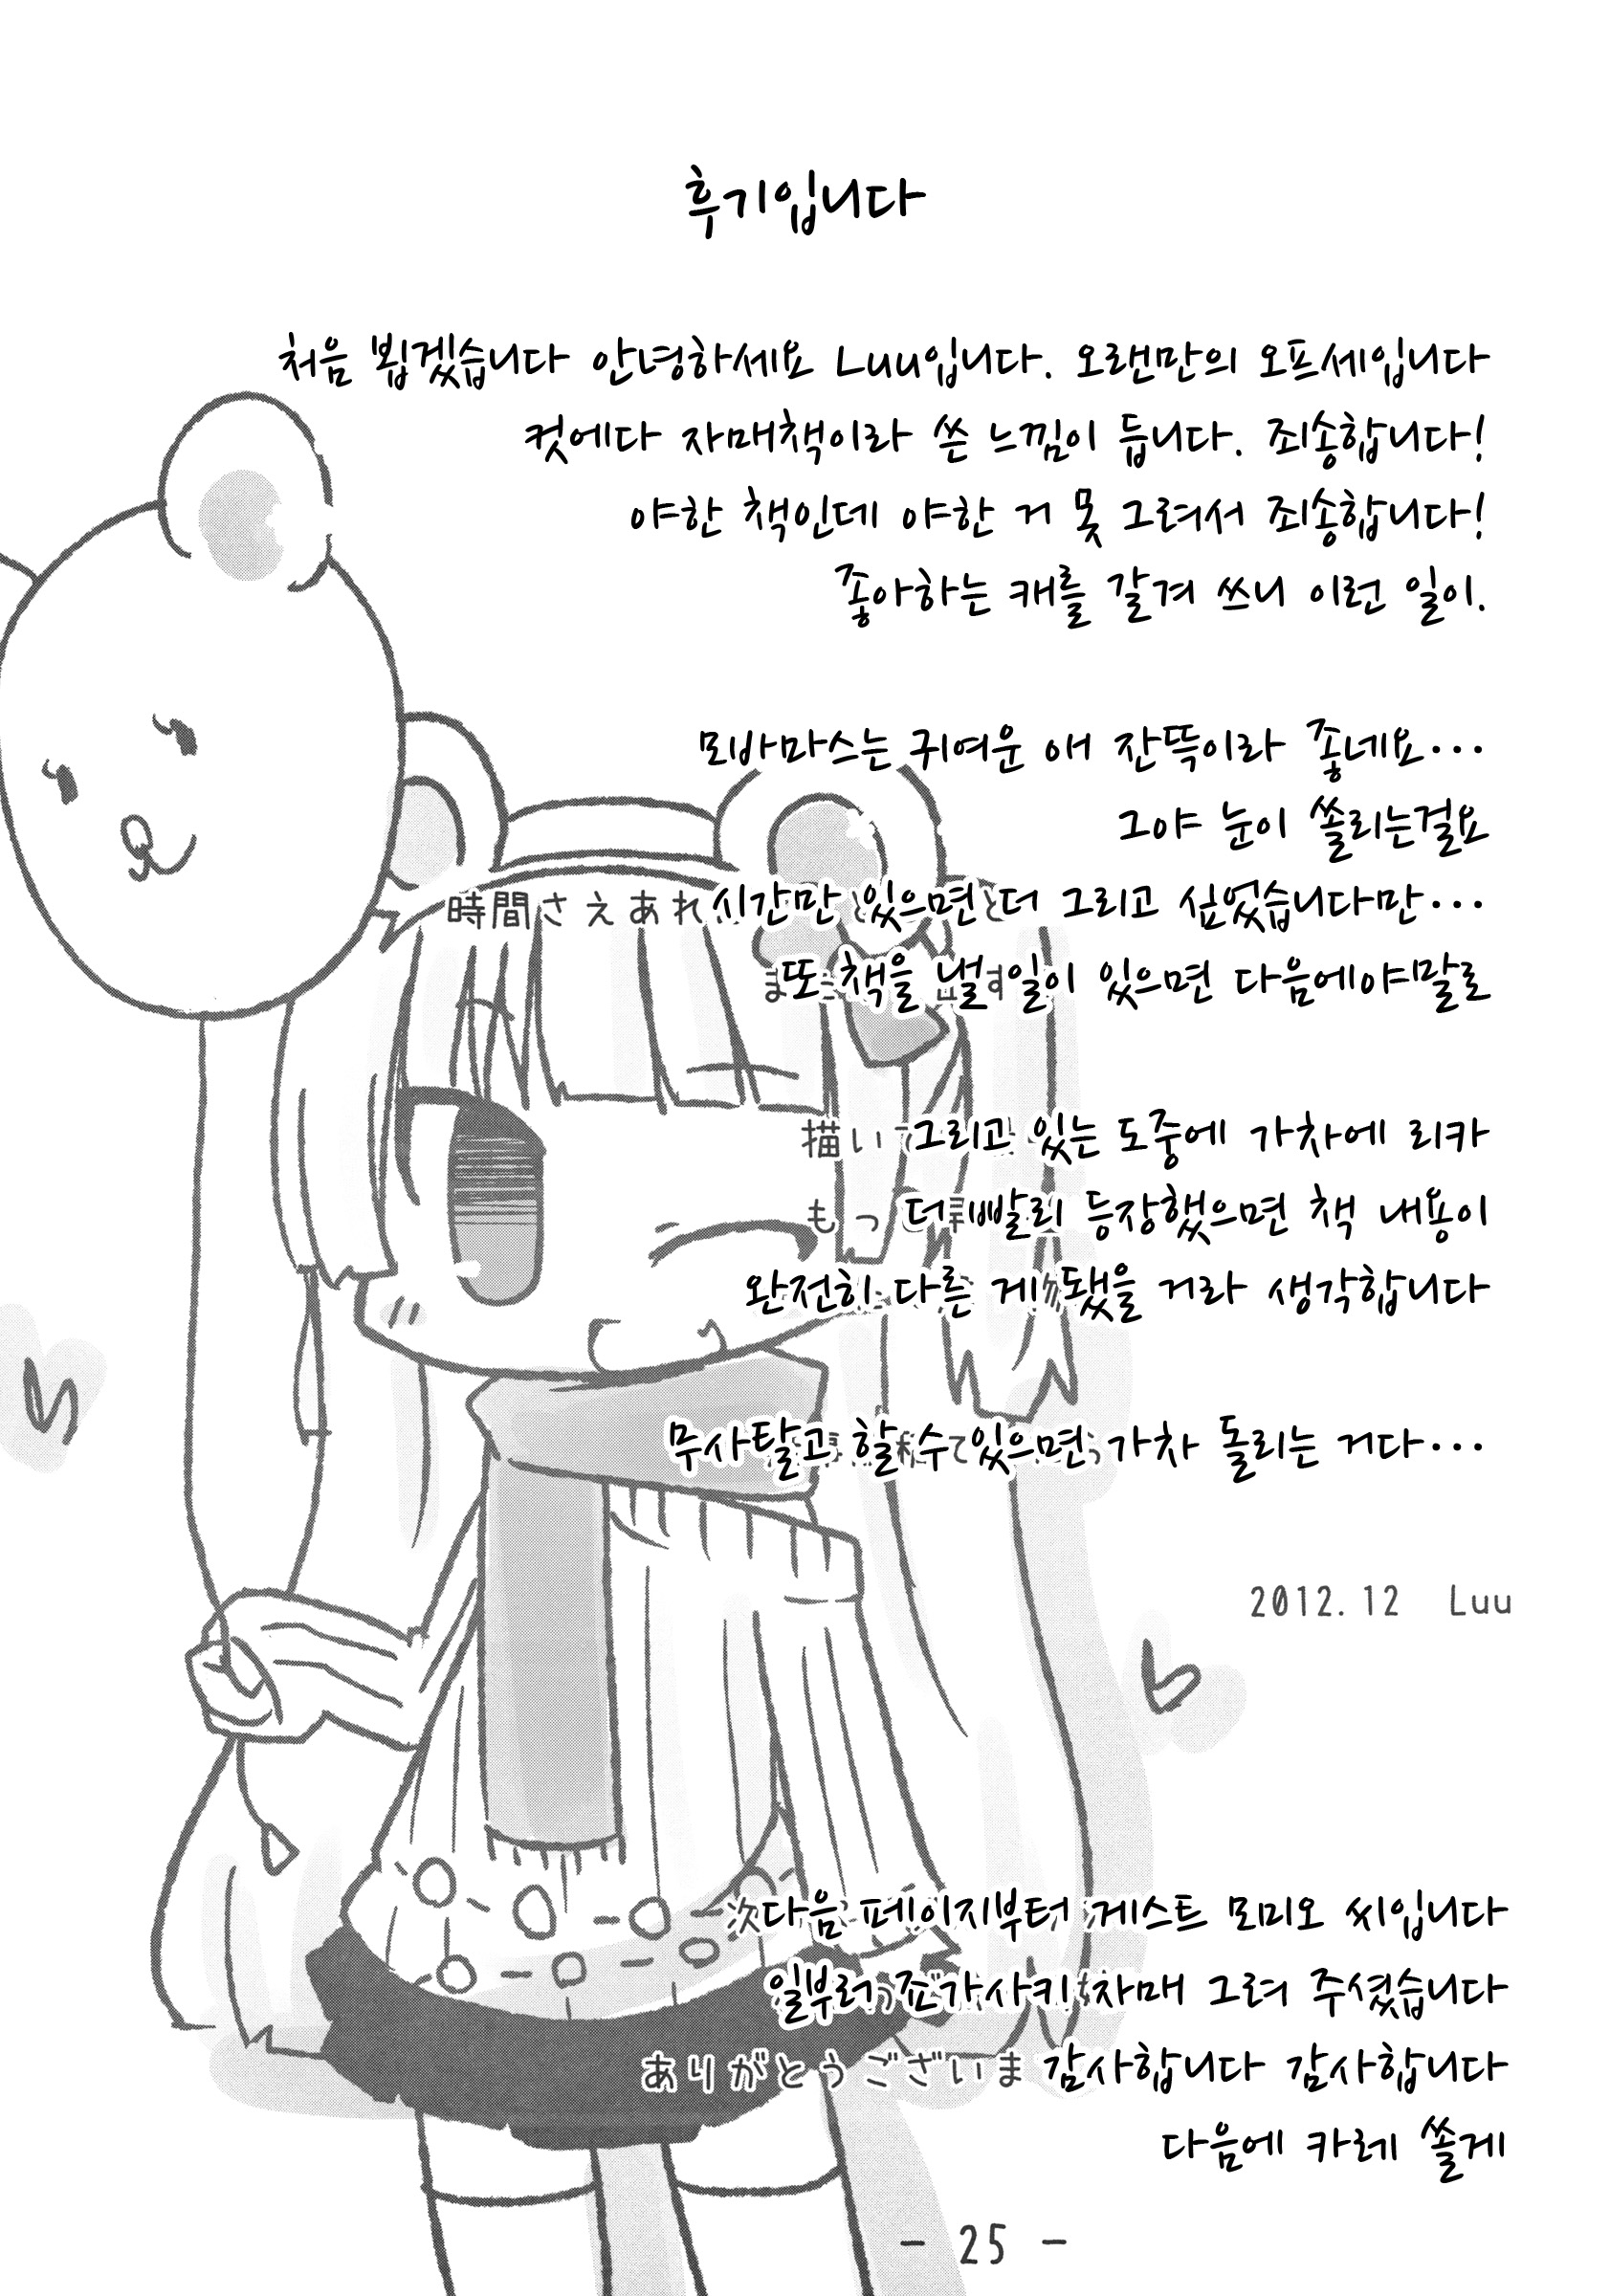 후기입니다
처음 뵙겠습니다 안녕하세요 Luu입니다. 오랜만의 오프세입니다
컷에다 자매책이라 쓴 느낌이 듭니다. 죄송합니다!
야한 책인데 야한 거 못 그려서 죄송합니다!
좋아하는 캐를 갈겨 쓰니 이런 일이.
모바마스는 귀여운 애 잔뜩이라 좋네요···
그야 눈이 쏠리는걸요
時間さえあれ 시간만 있으면 더 그리고 싶었습니다만···
ま 또 책을 낼 일이 있으면 다음에야말로
描い 그리고 있는 도중에 가차에 리카
もっ 더 빨리 등장했으면 책 내용이
완전히 다른 게 됐을 거라 생각합니다
무사탈고 할 수 있으면 가차 돌리는 거다···
2012.12 Luu
次 다음 페이지부터 게스트 모미오 씨입니다
일부러 죠가사키 자매 그려 주셨습니다
ありがとうございま 감사합니다 감사합니다
다음에 카레 쏠게
- 25 -